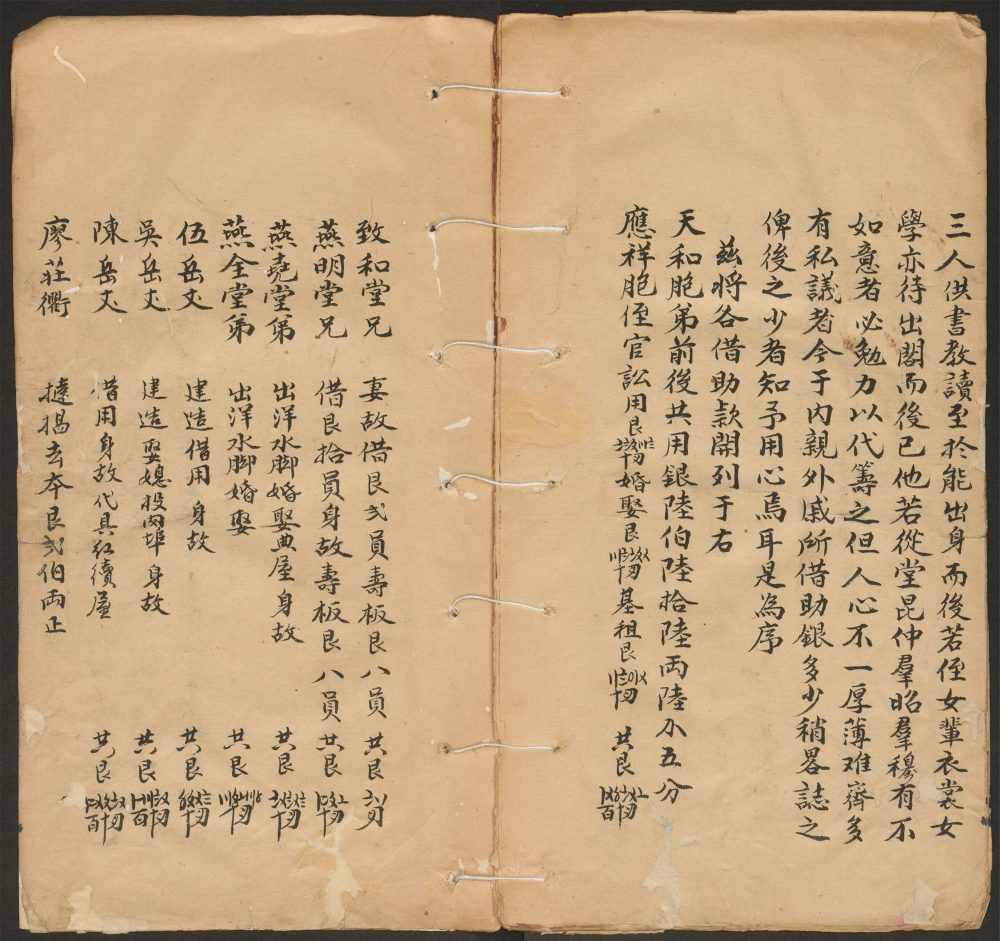 三人供書教讀至於能出身而後若侄女輩衣裳女
學亦待出閣而後已他若從堂昆仲羣昭羣穆有不
如意者必勉力以代籌之但人心不一厚薄难齊多
有私議者今于内親外戚所借助銀多少稍畧誌之
俾後之少者知予用心焉耳是為序
兹將各借助款開列于右
天和胞弟前後共用銀陸伯陸拾陸両陸卜五分
應祥胞侄官訟用艮 婚娶艮 基祖艮 共艮
致和堂兄 妻故借艮弍員壽板艮八員 共艮
燕明堂兄 借艮拾員身故壽板艮八員 共艮
燕堯堂弟 出洋水脚婚娶典屋身故 共艮
燕全堂弟 出洋水脚婚娶 共艮
伍岳丈 建造借用身故 共艮
吳岳丈 建造娶媳投內埠身故 共艮
陳岳丈 借用身故代具紅續屋 共艮
廖莊衢 揭去本艮弍伯両正